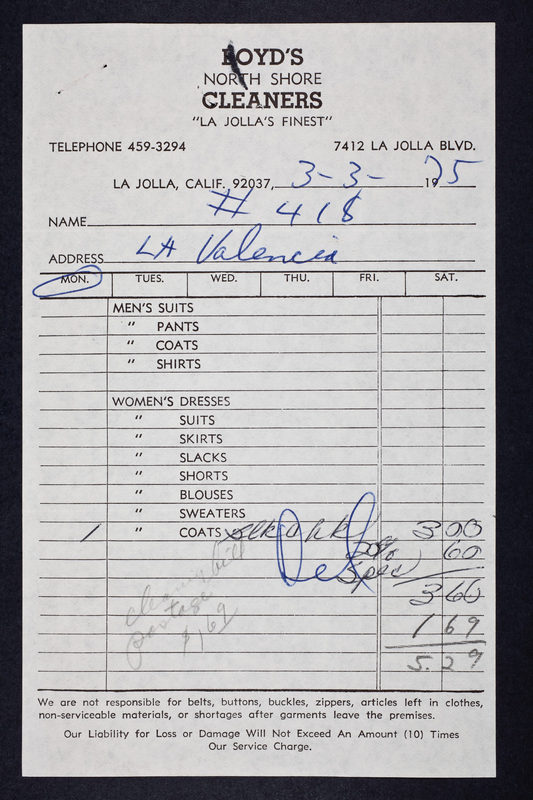 BOYD'S
NORTH SHORE
CLEANERS
"LA JOLLA'S FINEST"
TELEPHONE 459-3294 7412 LA JOLLA BLVD.
LA JOLLA, CALIF. 92037, 3-3- 1975
NAME # 418
ADDRESS LA Valencia
MON. TUES. WED. THU. FRI. SAT.
MEN'S SUITS
" PANTS
" COATS
" SHIRTS
WOMEN'S DRESSES
" SUITS
" SKIRTS
" SLACKS
" SHORTS
" BLOUSES
" SWEATERS
1 " COATS 3 00
20% 60
Spec
3 60
cleaning bill
postage
$1.69
1 69
5.29
We are not responsible for belts, buttons, buckles, zippers, articles left in clothes,
non-serviceable materials, or shortages after garments leave the premises.
Our Liability for Loss or Damage Will Not Exceed An Amount (10) Times
Our Service Charge.